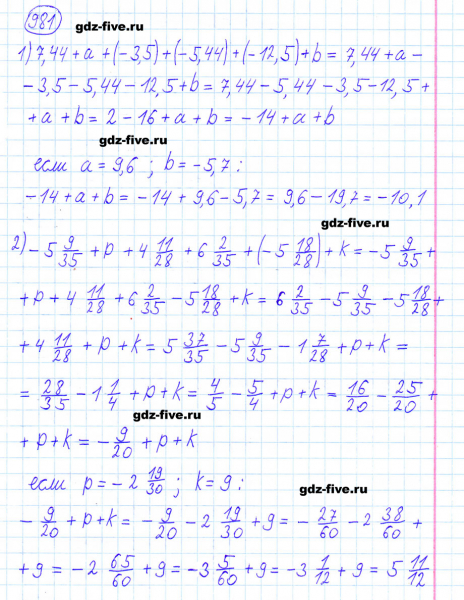 981 gdz-five.ru
1) 7,44 + a + (-3,5) + (-5,44) + (-12,5) + b = 7,44 + a -
- 3,5 - 5,44 - 12,5 + b = 7,44 - 5,44 - 3,5 - 12,5 +
+ a + b = 2 - 16 + a + b = -14 + a + b
gdz-five.ru
если a = 9,6 ; b = -5,7 :
-14 + a + b = -14 + 9,6 - 5,7 = 9,6 - 19,7 = -10,1
gdz-five.ru
2) -5 9/35 + p + 4 11/28 + 6 2/35 + (-5 18/28) + k = -5 9/35 +
+ p + 4 11/28 + 6 2/35 - 5 18/28 + k = 6 2/35 - 5 9/35 - 5 18/28 +
+ 4 11/28 + p + k = 5 37/35 - 5 9/35 - 1 7/28 + p + k =
= 28/35 - 1 1/4 + p + k = 4/5 - 5/4 + p + k = 16/20 - 25/20 +
gdz-five.ru
+ p + k = -9/20 + p + k
если p = -2 19/30 ; k = 9 :
gdz-five.ru
-9/20 + p + k = -9/20 - 2 19/30 + 9 = -27/60 - 2 38/60 +
+ 9 = -2 65/60 + 9 = -3 5/60 + 9 = -3 1/12 + 9 = 5 11/12